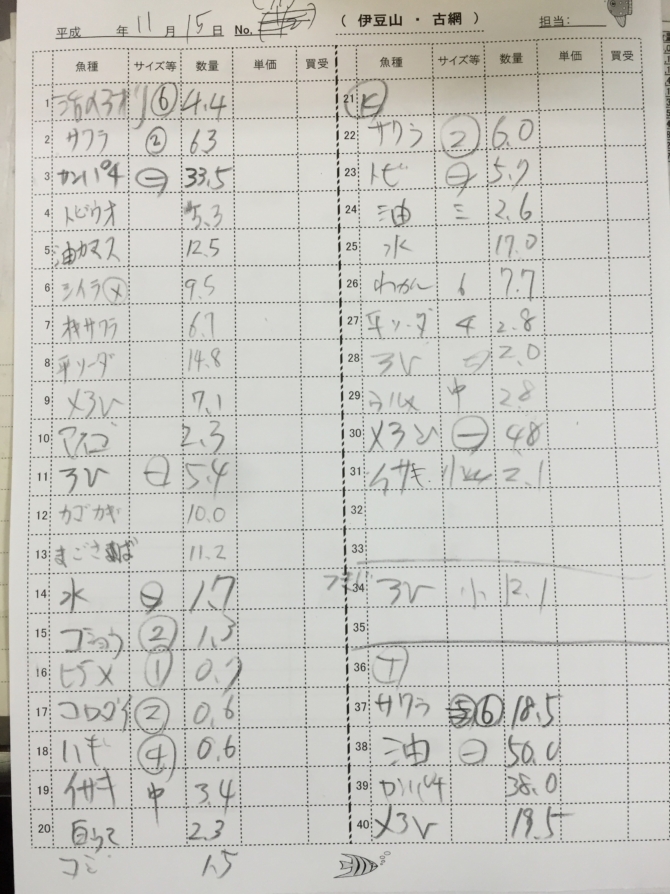 平成 年 11 月 15 日 No. ( 伊豆山 ・ 古網 ) 担当:
魚種 サイズ等 数量 単価 買受
1 ⑥ 4.4
2 サワラ ② 6.3
3 カンパチ ㊀ 33.5
4 トビウオ 5.3
5 油カマス 12.5
6 シイラ 9.5
7 サワラ 6.7
8 平ソーダ 14.8
9 メ
 7.1
10 アイゴ 2.3
11 5.4
12 カゴカキ 10.0
13 まごさば 11.2
14 水 1.7
15 コショウ ② 1.3
16 ヒラメ ① 0.7
17 コロダイ ② 0.6
18 ハギ ④ 0.6
19 イサキ 中 3.4
20 2.3
1.5
魚種 サイズ等 数量 単価 買受
21
22 サワラ ㊁ 6.0
23 トビ ㊀ 5.7
24 油 三 2.6
25 水 17.0
26 わかし 6 7.7
27 平ソーダ 4 2.8
28 2.0
29 ウルメ 中 2.8
30 ㊀ 48
31 イサキ 小 2.1
32
33
34 小 12.1
35
36
37 サワラ ⑥ 18.5
38 油 ㊀ 50.0
39 カンパチ 38.0
40 19.5